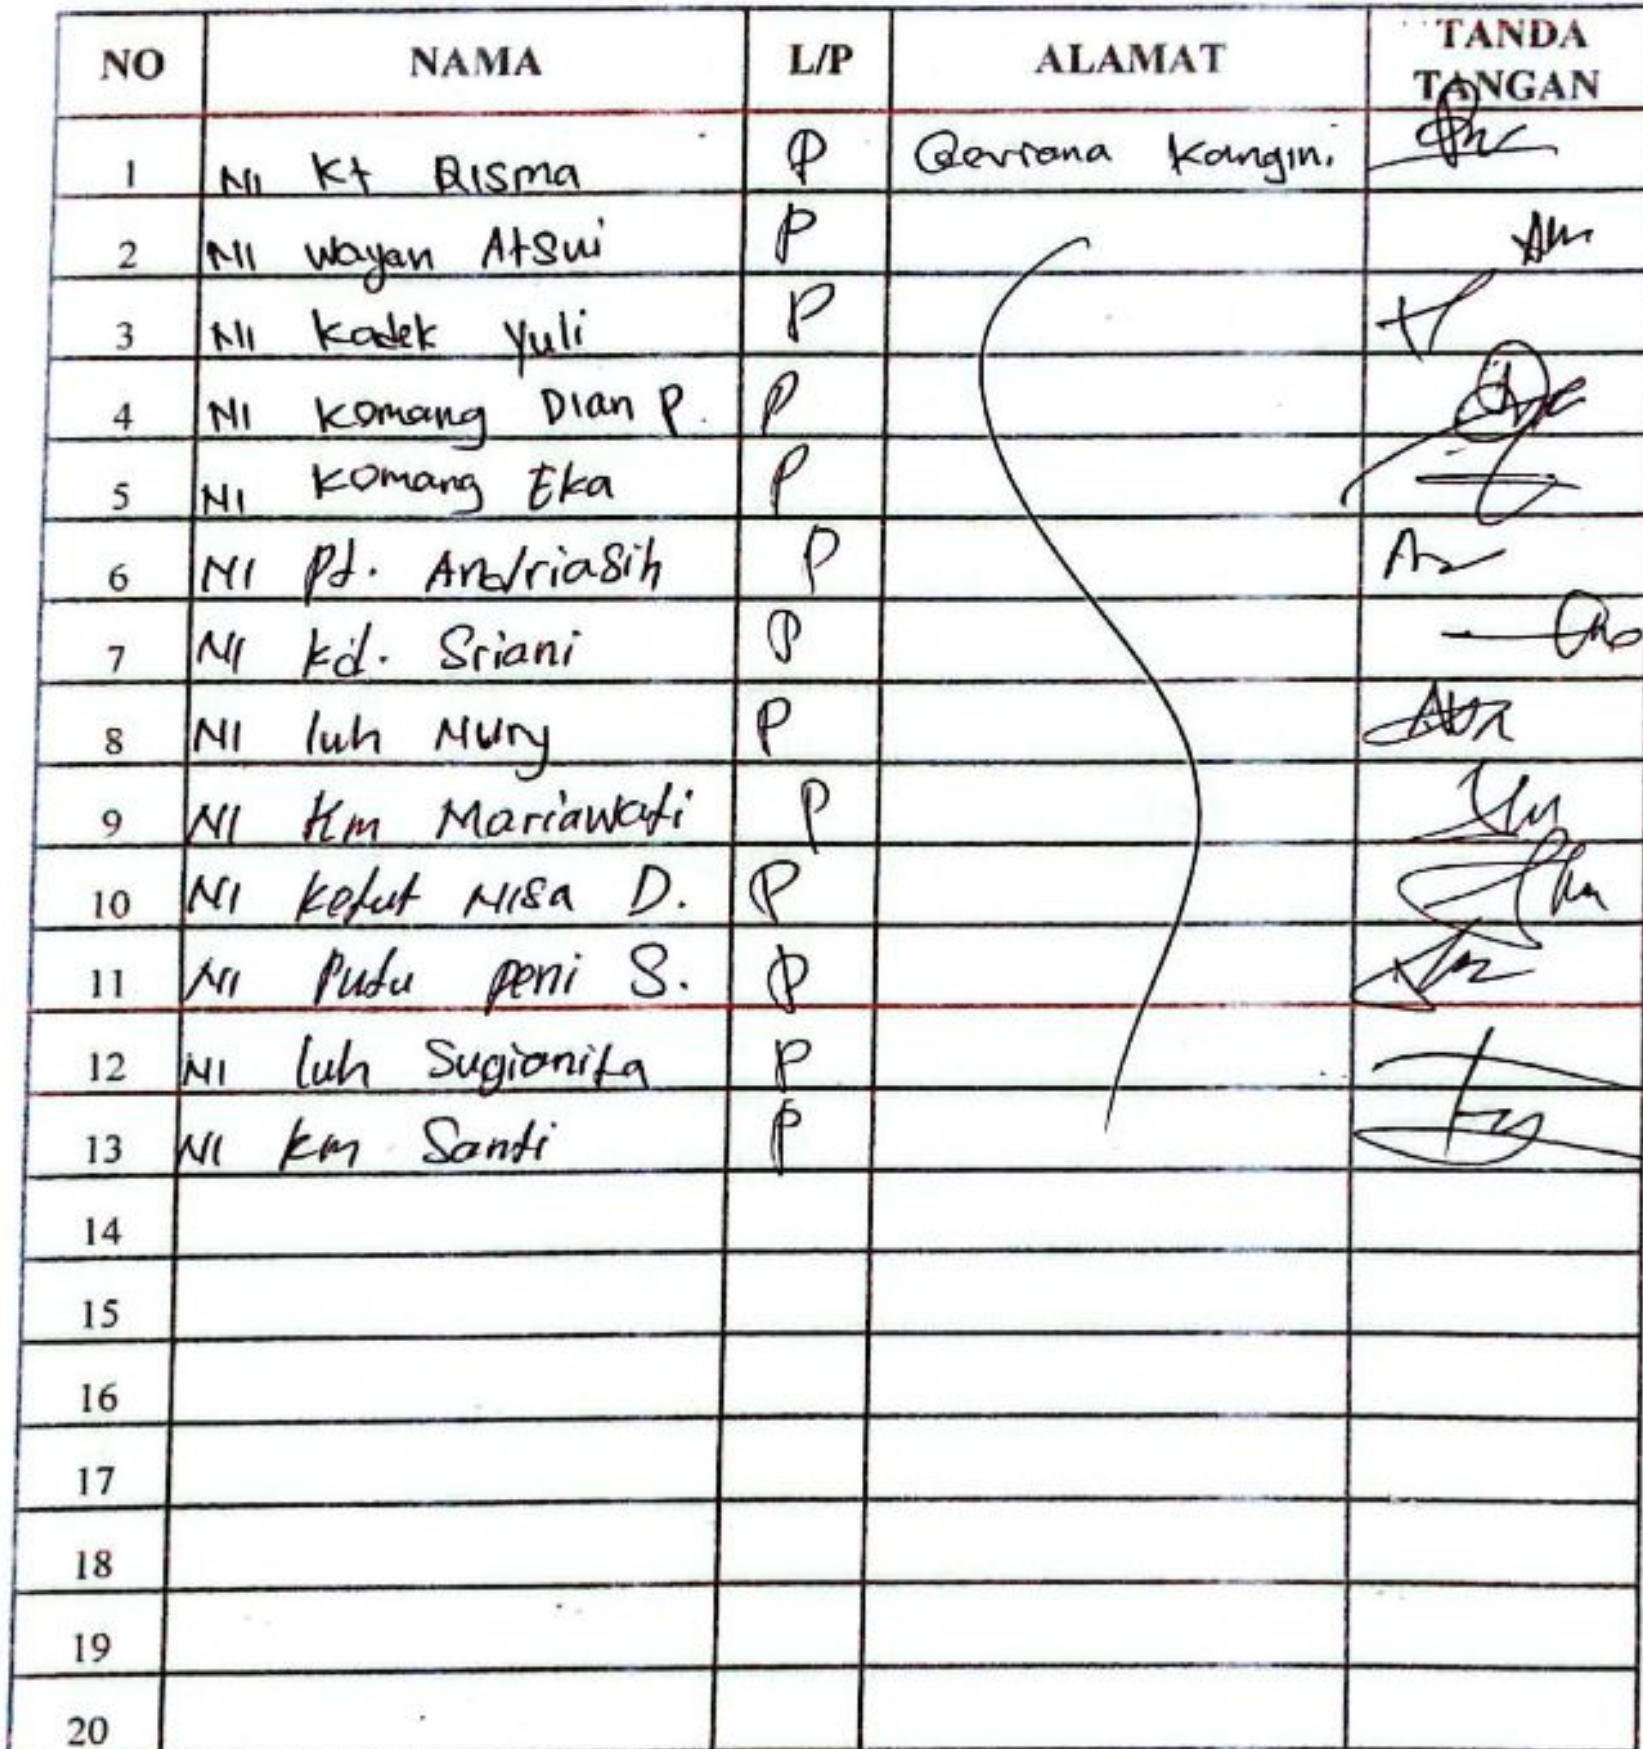 NO NAMA L/P ALAMAT TANDA TANGAN
1 NI Kt Risma P Kangin.
2 NI Wayan P
3 NI Kadek Yuli P
4 NI Komang Dian P. P
5 NI Komang Eka P
6 NI Pt. Andriasih P
7 NI Kd. Sriani P
8 NI luh Nury P
9 NI Km Mariawati P
10 NI Ketut Nisa D. P
11 NI Putu peni S. P
12 NI luh Sugianita P
13 NI Km Santi P
14
15
16
17
18
19
20